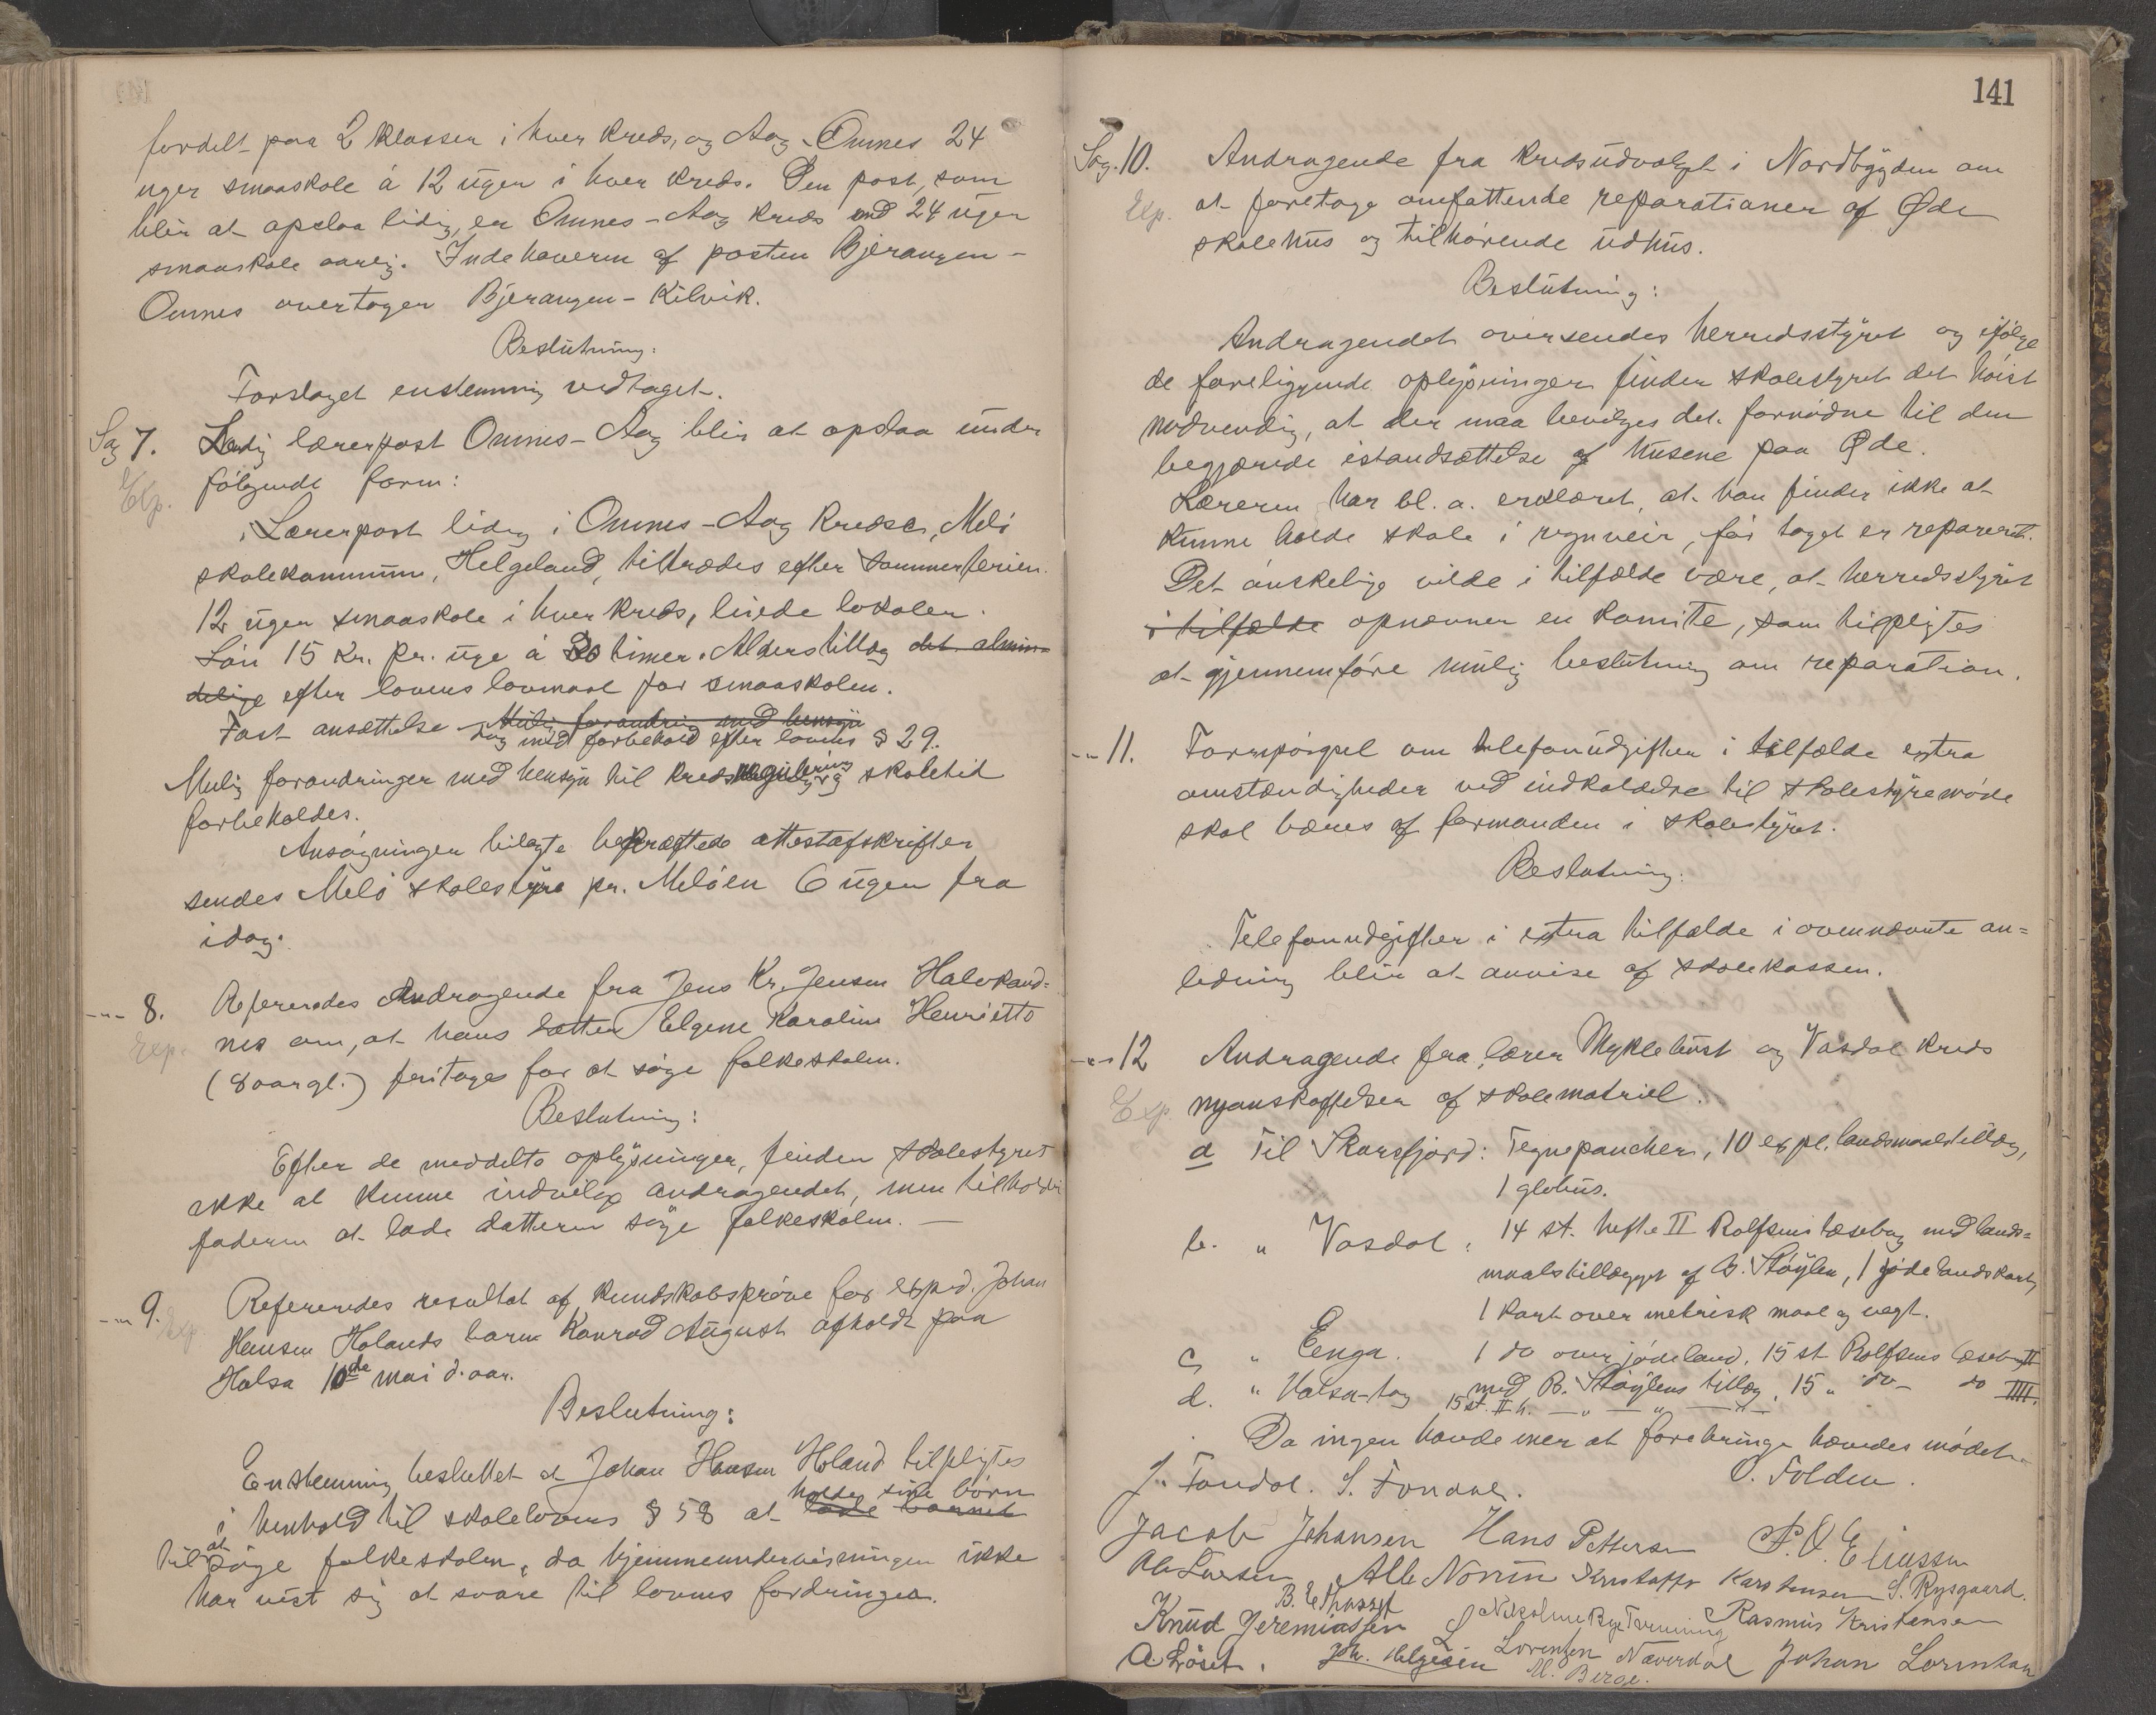 fordelt paa 2 klasser i hver kreds, og Aag-Ornes 24
uger smaaskole á 12 uger i hver kreds. Den post, som
blir at opslaa ledig, er Ornes-Aag kreds med 24 uger
smaaskole aarlig. Indehaveren af posten Bjerangen-
Ornes overtager Bjerangen-Kilvik.
Beslutning:
Forslaget enstemmig vedtaget.
Sag 7. Ledig lærerpost Ornes-Aag blir at opslaa under
Exp. følgende form:
"Lærerpost ledig i Ornes-Aag kredse, Melø
skolekommune, Helgeland, tiltrædes efter sommerferien.
12 uger smaaskole i hver kreds, leiede lokaler.
Løn 15 kr. pr. uge á 36 timer. Alderstillæg det almin-
delige efter lovens lovmaal for smaaskolen.
Fast ansættelse Mulig forandring med hensyn
dog med forbehold efter lovens § 29.
Mulig forandringer med hensyn til kredsregulering og skoletid
forbeholdes.
Ansøgninger bilagte bekræftede attestafskrifter
sendes Melø skolestyre pr. Meløen 6 uger fra
idag.
-"- 8. Refereredes Andragende fra Jens Kr. Jensen Halvkand-
Exp. nes om, at hans datter Elgene Karoline Henriette
(8 aar gl.) fritages for at søge folkeskolen.
Beslutning:
Efter de meddelte oplysninger, finder skolestyret
ikke at kunne indvilge andragendet, men tilholder
faderen at lade datteren søge folkeskolen. —
-"- 9. Refereredes resultat af kundskabsprøve for exped. Johan
Exp. Hansen Holands barn Konrad August afholdt paa
Halsa 10de mai d. aar.
Beslutning:
Enstemmig besluttet at Johan Hansen Holand tilpligtes
holde sine børn
i henhold til skolelovens § 58 at lade barnet
til at søge folkeskolen, da hjemmeundervisningen ikke
har vist sig at svare til lovens fordringer.
141
Sag. 10. Andragende fra kredsudvalget i Nordbygden om
Exp. at foretage omfattende reparationer af Øde
skolehus og tilhørende udhus.
Beslutning:
Andragendet oversendes herredsstyret og ifølge
de foreliggende oplysninger finder skolestyret det høist
nødvendig, at der maa bevilges det fornødne til den
begjærede istandsættelse af husene paa Øde.
Læreren har bl. a. erklæret, at han finder ikke at
kunne holde skole i regnveir, før taget er reparert.
Det ønskelige vilde i tilfælde være, at herredsstyret
i tilfælde opnævner en komite, som tilpligtes
at gjennemføre mulig beslutning om reparation.
-"- 11. Forespørgsel om telefonudgifter i tilfælde extra
omstændigheder ved indkaldelse til skolestyremøde
skal bæres af formanden i skolestyret.
Beslutning:
Telefonudgifter i extra tilfælde i ovennævnte an-
ledning blir at anvise af skolekassen.
-"- 12 Andragende fra lærer Myklebust og Vasdal kreds
Exp. nyanskaffelser af skolematriel.
a Til Skarsfjord: Tegneplancher, 10 expl. landsmaalstillæg,
1 globus.
b. " Vasdal: 14 st. hefte II Rolfsens læsebog med lands-
maalstillegget af B. Støylen, 1 jødelandskart,
1 kart over metrisk maal og vegt.
c, " Eenga. 1 do over jødeland. 15 st Rolfsens læseb. II
d. " Halsa-Aag med B. Støylens tillæg, 15 " do- do IIII.
15 st. II h. —"— —"—
Da ingen havde mer at forebringe hævedes mødet.
J. Fondal. S. Fondal. O. Folden.
Jacob Johansen Hans Pettersen P. O. Eliassen
Ole Larsen Kristoffer Karstensen S. Rysgaard.
Knud Jeremiassen Rasmus Kristensen
A. Løset. Joh. Helgesen L. Lorentzen Næverdal Johan Lorentsen
M. Berge.